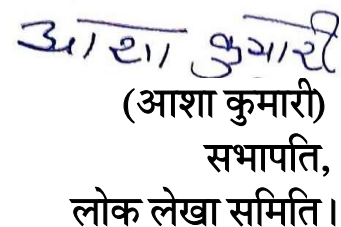 आशा कुमारी
(आशा कुमारी)
सभापति,
लोक लेखा समिति।